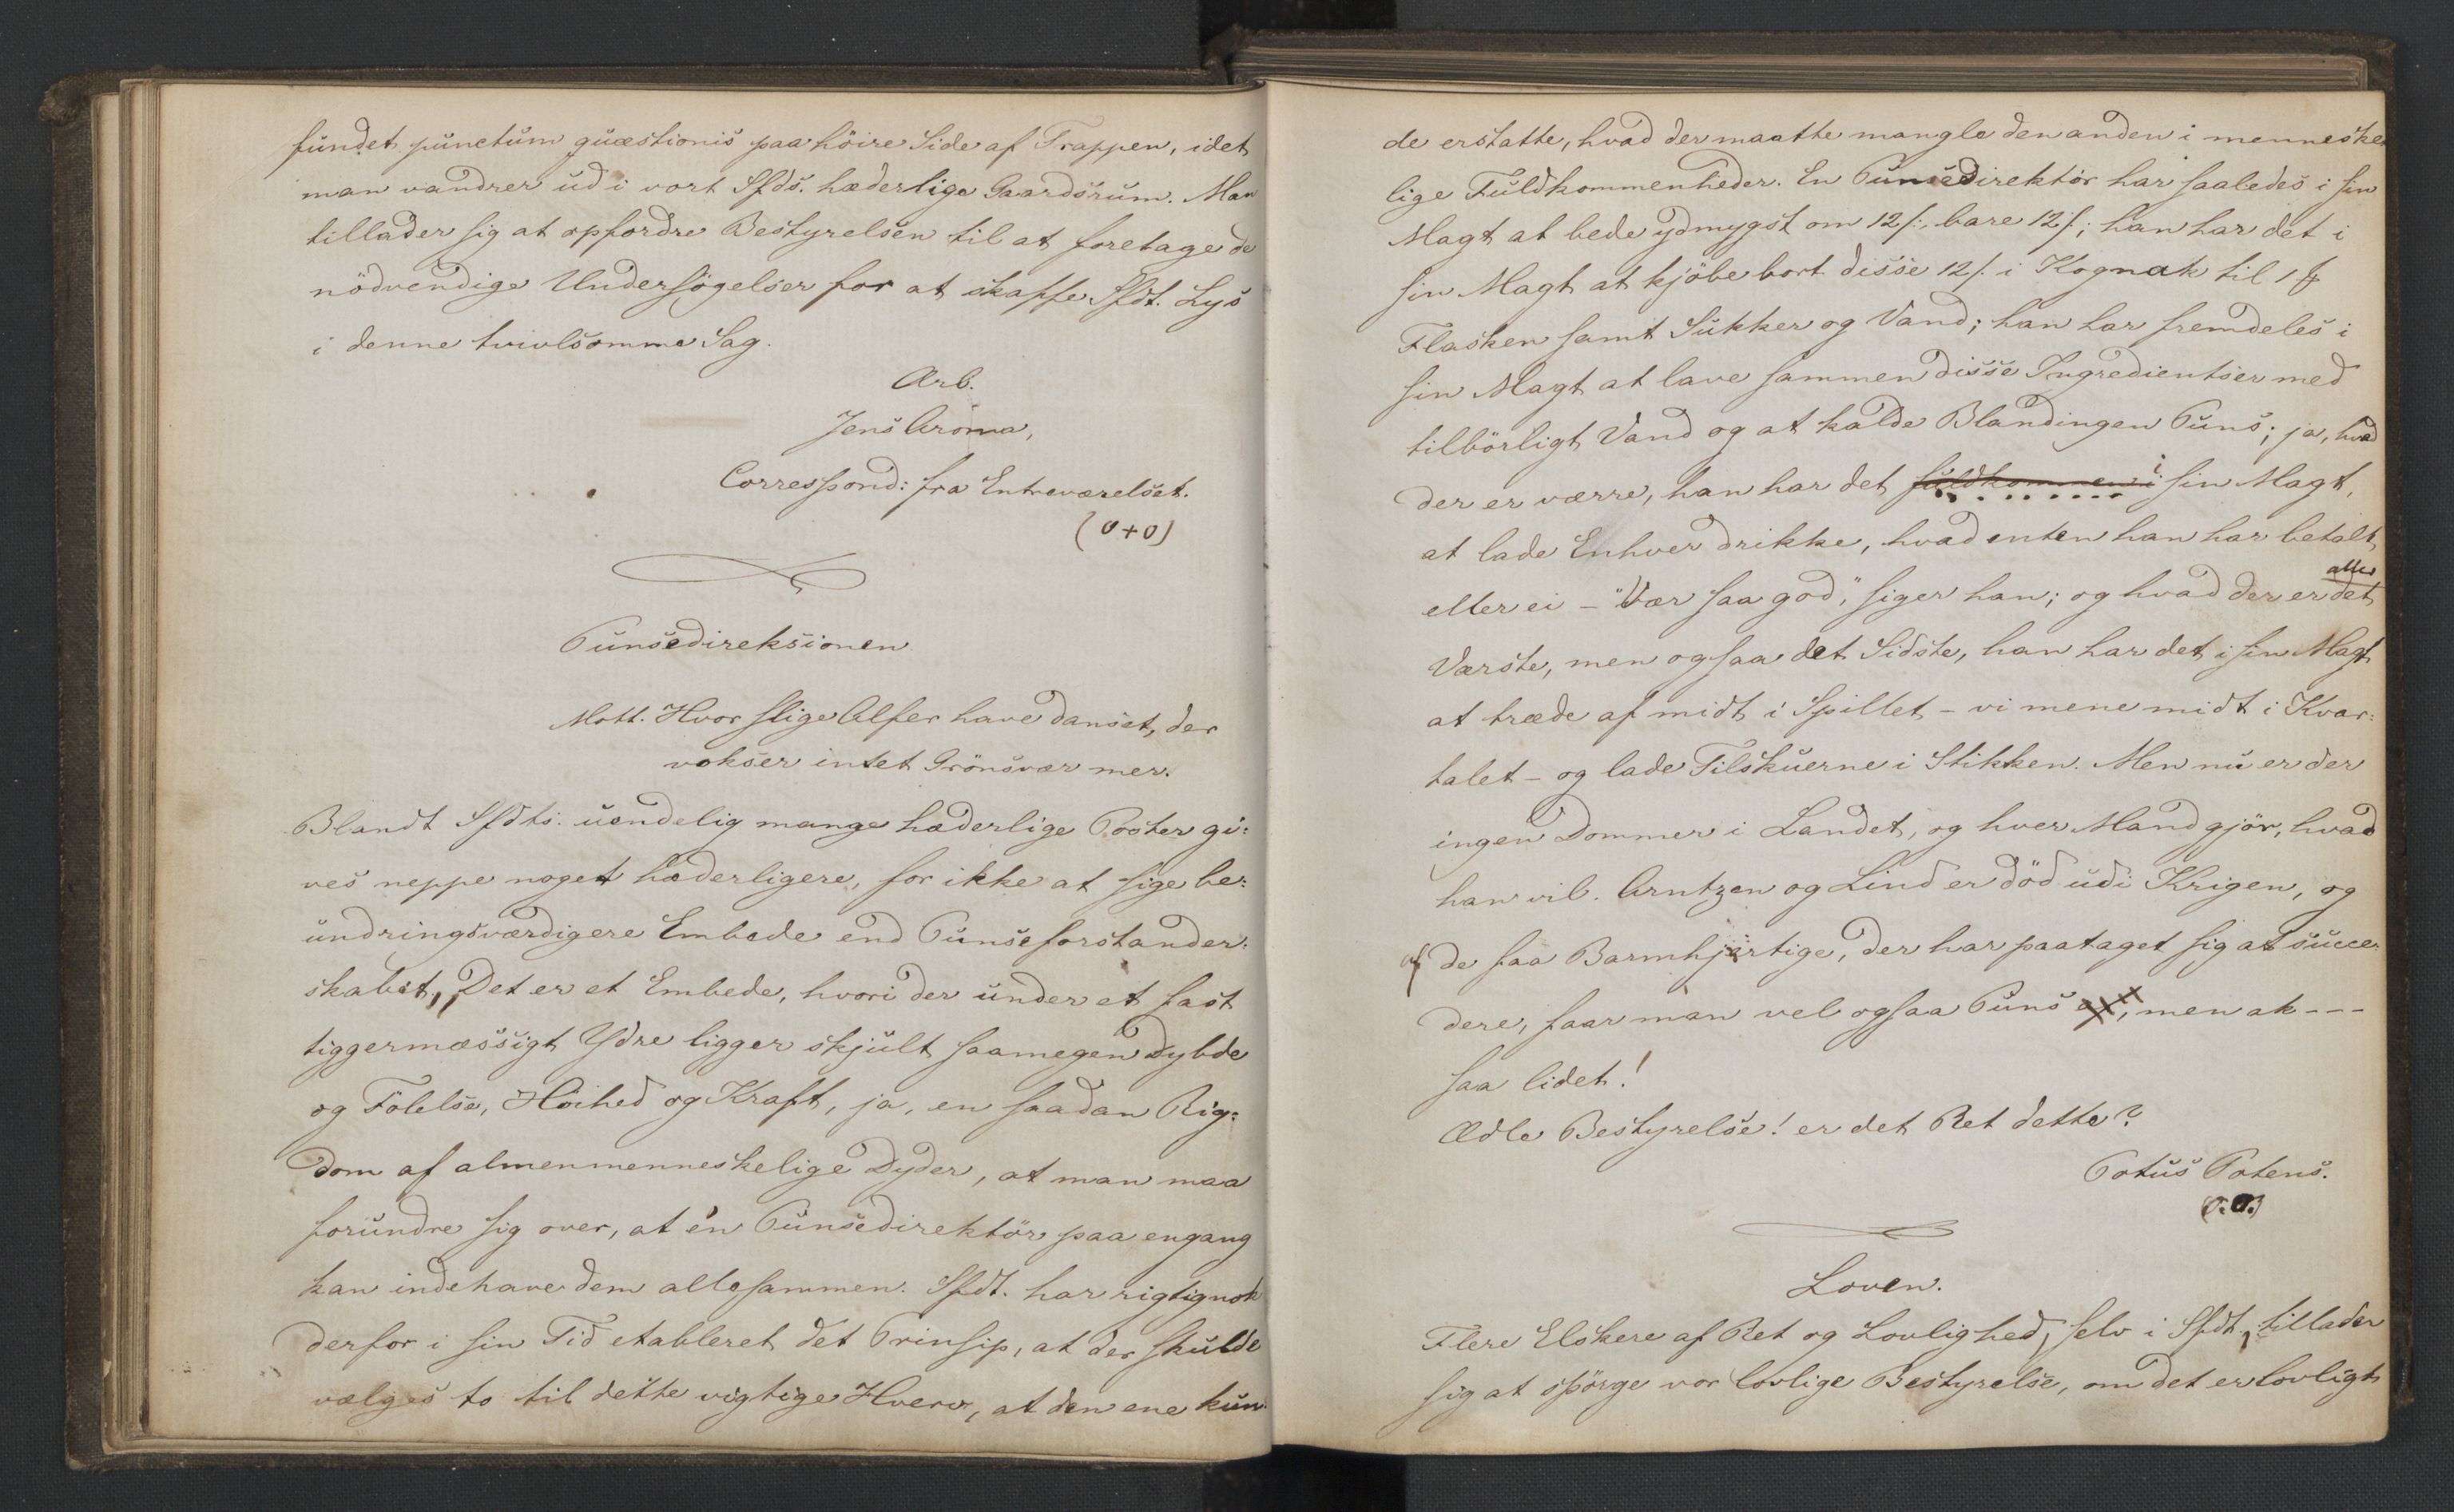 fundet punctum quæstionis paa höire Side af Trappen, idet
man vandrer ud i vort Sfds. hæderlige Gaardsrum. Man
tillader sig at opfordre Bestyrelsen til at foretage de
nödvendige Undersögelser for at skaffe Sfdt. Lys
i denne tvivlsomme Sag.
Ærb.
Jens Aroma,
Correspond: fra Entreværelset.
(0+0)
Punsedireksionen
Mott. Hvor slige Alfer have danset, der
vokser intet Grönsvær mer.
Blandt Sfdts. uendelig mange hæderlige Poster gi:
ves neppe noget hæderligere, for ikke at sige be:
undringsværdigere Embede end Punseforstander:
skabet. Det er et Embede, hvori der under et fast
tiggermæssigt Ydre ligger skjult saamegen Dybde
og Fölelse, Höihed og Kraft, ja, en saadan Rig:
dom af almenmenneskelige Dyder, at man maa
forundre sig over, at én Punsedirektör paa engang
kan indehave dem allesammen. Sfdt. har rigtignok
derfor i sin Tid etableret det Prinsip, at der skulde
vælges to til dette vigtige Hverv, at den ene kun-
de erstatte, hvad der maatte mangle den anden i menneske
lige Fuldkommenheder. En Punsedirektör har saaledes i sin
Magt at bede ydmygst om 12 /:, bare 12 /:; han har det i
sin Magt at kjöbe bort disse 12 /: i Kognak til 1
Flasken samt Sukker og Vand; han har fremdeles i
sin Magt at lave sammen disse Ingredientser med
tilbörligt Vand og at kalde Blandingen Puns; ja, hvad
der er værre, han har det fuldkommen i sin Magt,
at lade Enhver drikke, hvad enten han har betalt
eller ei – "Vær saa god," siger han; og hvad der er det aller
Værste, men ogsaa det Sidste, han har det i sin Magt
at træde af midt i Spillet – vi mene midt i Kvar:
talet – og lade Tilskuerne i Stikken. Men nu er der
ingen Dommer i Landet, og hver Mand gjör, hvad
han vil. Arntzen og Lind er död udi Krigen, og
af de faa Barmhjertige, der har paataget sig at succe-
dere, faar man vel ogsaa Puns af, men ak ---
saa lidet!
Ædle Bestyrelse! er det Ret dette?
Potus Potens.
Loven.
Flere Elskere af Ret og Lovlighed, selv i Sfdt, tillader
sig at spörge vor lovlige Bestyrelse, om det er lovligt